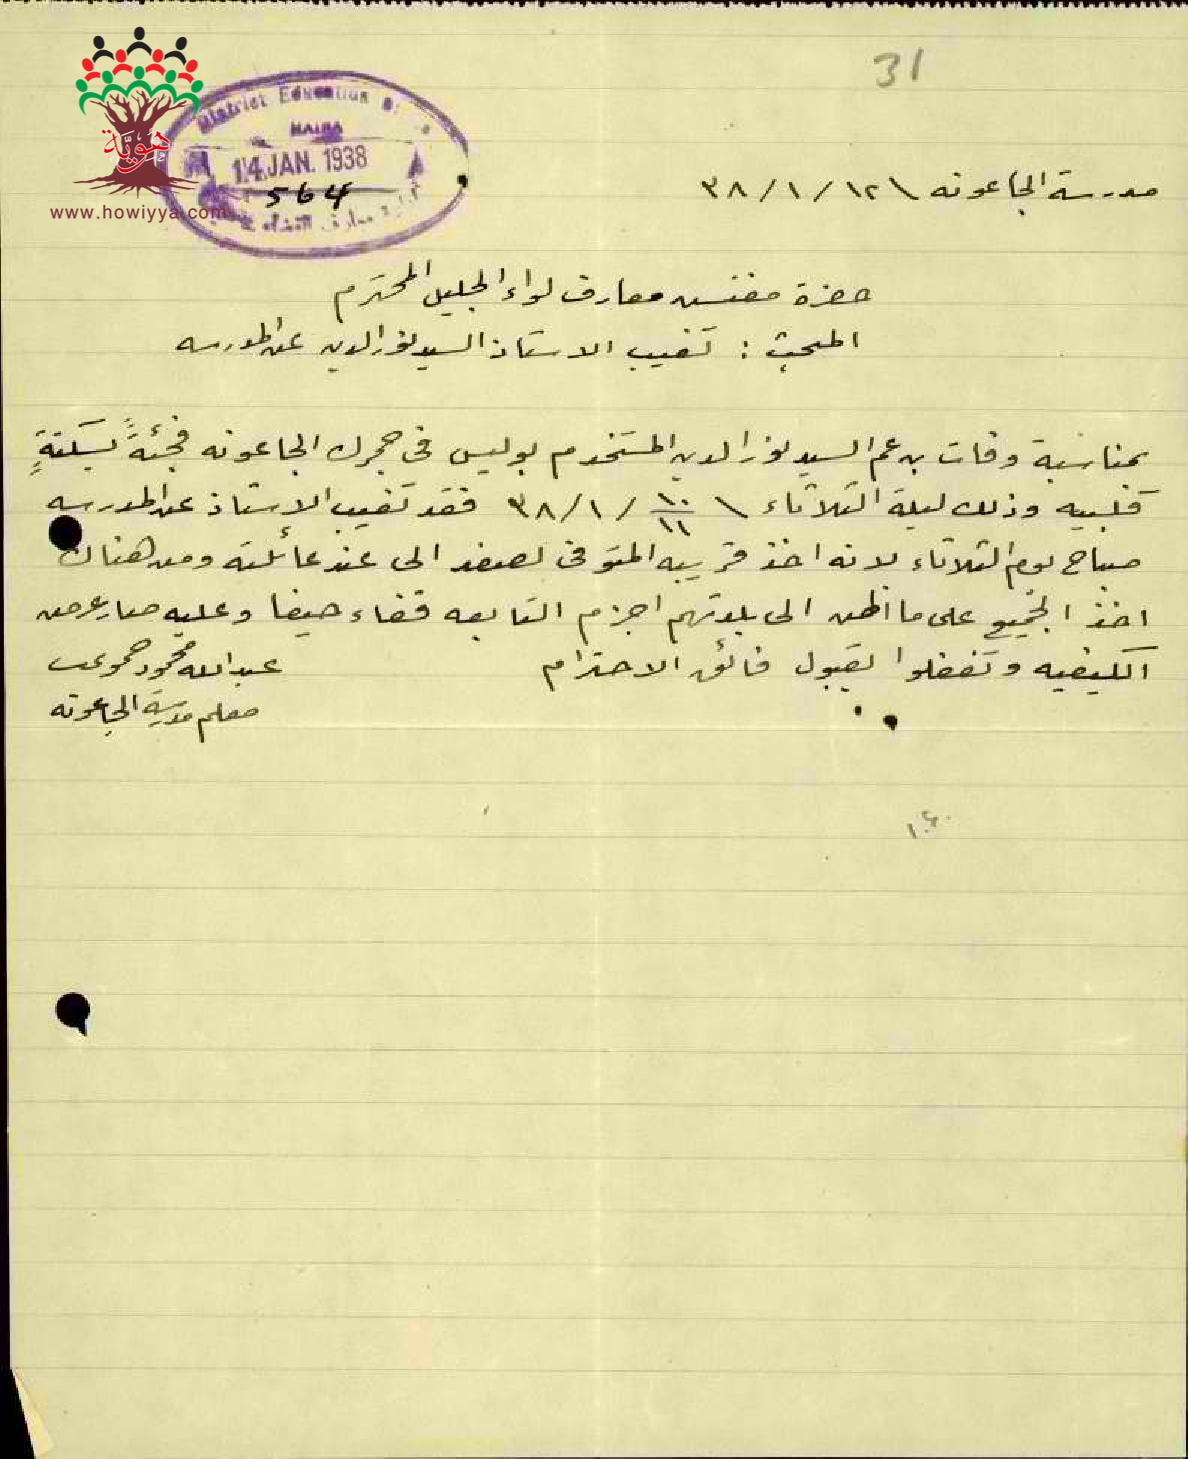 31
District Education
HAIFA
14 JAN. 1938
564
هويّة
www.howiyya.com
مدرسة الجاعونه \ ١٢ / ١ / ٣٨
حضرة مفتش معارف لواء الجليل المحترم
المبحث : تغيب الاستاذ السيد نور الدين عن المدرسه
بمناسبة وفات بن عم السيد نور الدين المستخدم بوليس في جمرك الجاعونه فجئةً بسكتةٍ
قلبيه وذلك ليلة الثلاثاء \ ١٠/١١ / ١ / ٣٨ فقد تغيب الاستاذ عن المدرسه
صباح يوم الثلاثاء لانه اخذ قريبه المتوفى لصفد الى عند عائلته ومن هناك
اخذ الجميع على ما اظن الى بلدتهم اجزم التابعه قضاء حيفا وعليه صار عرض
الكيفيه وتفضلوا بقبول فائق الاحترام
عبدالله محمود
معلم مدرسة الجاعونه